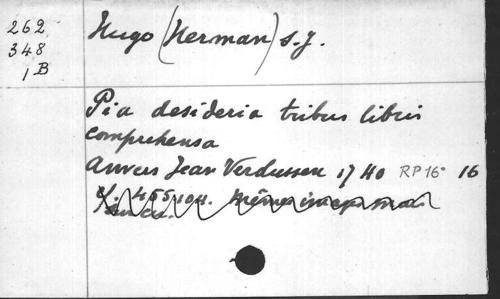 262
348
1 B
Hugo (Herman) s.j.
Pia desideria tribus libris
comprehensa
Anvers Jean Verdussen 1740 RP16° 16